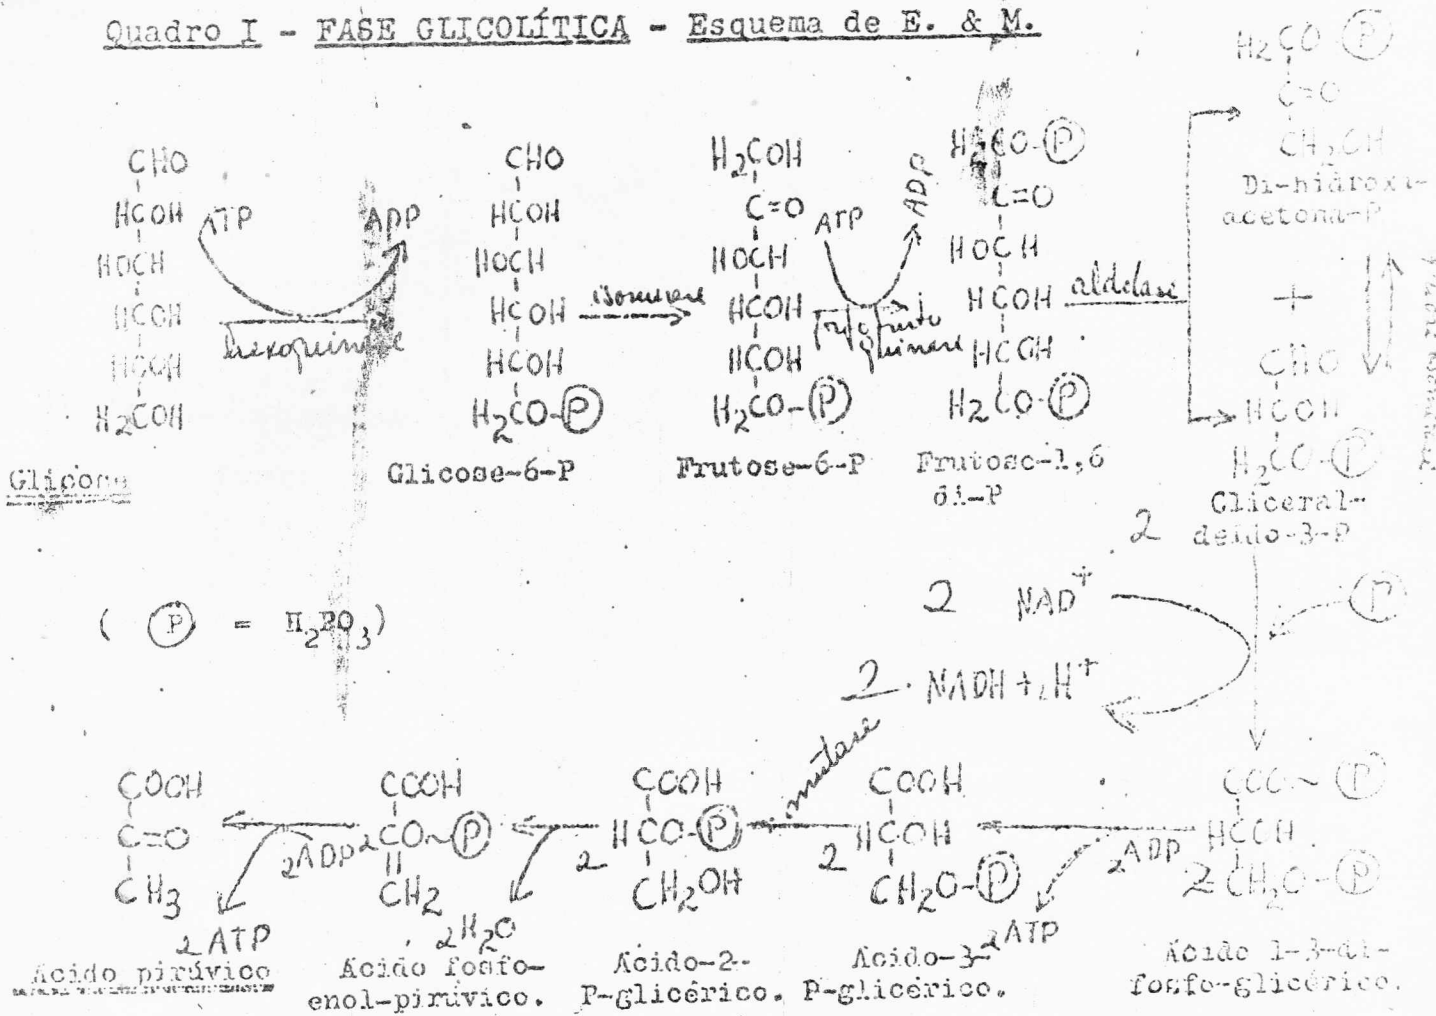 Quadro I - FASE GLICOLÍTICA - Esquema de E. & M.
CHO
HCOH
HOCH
HCOH
HCOH
H2COH
Glicose
ATP
ADP
hexoquinase
CHO
HCOH
HOCH
HCOH
HCOH
H2CO-P
Glicose-6-P
isomerase
H2COH
C=O
HOCH
HCOH
HCOH
H2CO-P
Frutose-6-P
ATP
ADP
fosfofruto
quinase
H2CO-P
C=O
HOCH
HCOH
HCOH
H2CO-P
Frutose-1,6
di-P
aldolase
H2CO P
C=O
CH2OH
Di-hidroxi-
acetona-P
+
CHO
HCOH
H2CO-P
2 Gliceral-
deído-3-P
( P = H2PO3)
2 NAD+
P
2 NADH + 2H+
COO~P
HCOH
2 CH2O-P
Ácido 1-3-di-
fosfo-glicérico.
2ADP
2ATP
COOH
2 HCOH
CH2O-P
Ácido-3-
P-glicérico.
mutase
COOH
2 HCO-P
CH2OH
Ácido-2-
P-glicérico.
2H2O
COOH
2CO~P
CH2
Ácido fosfo-
enol-pirúvico.
2ADP
2ATP
COOH
C=O
CH3
Ácido pirúvico